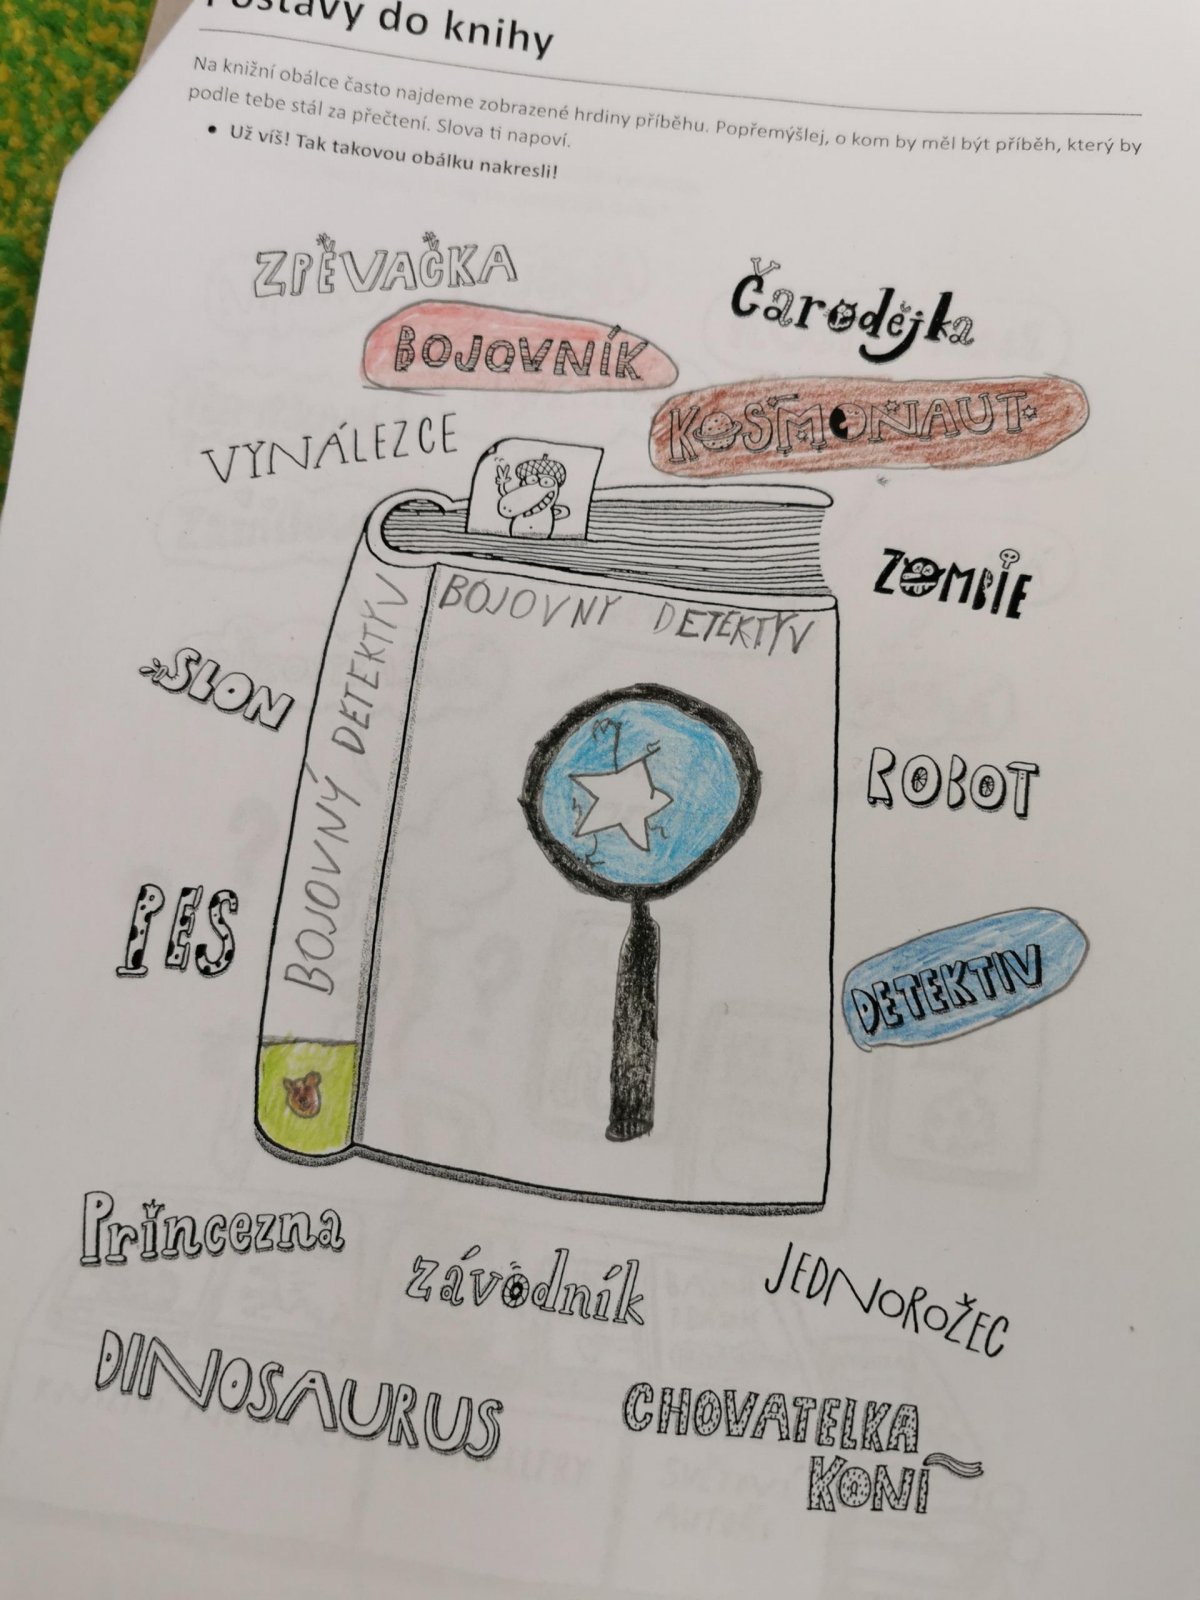 Postavy do knihy
Na knižní obálce často najdeme zobrazené hrdiny příběhu. Popřemýšlej, o kom by měl být příběh, který by
podle tebe stál za přečtení. Slova ti napoví.
• Už víš! Tak takovou obálku nakresli!
ZPĚVAČKA
Čarodějka
BOJOVNÍK
KOSMONAUT
VYNÁLEZCE
ZOMBIE
BOJOVNÝ DETEKTYV
BOJOVNY DETEKTYV
SLON
ROBOT
PES
DETEKTIV
Princezna
závodník
JEDNOROŽEC
DINOSAURUS
CHOVATELKA
KONÍ